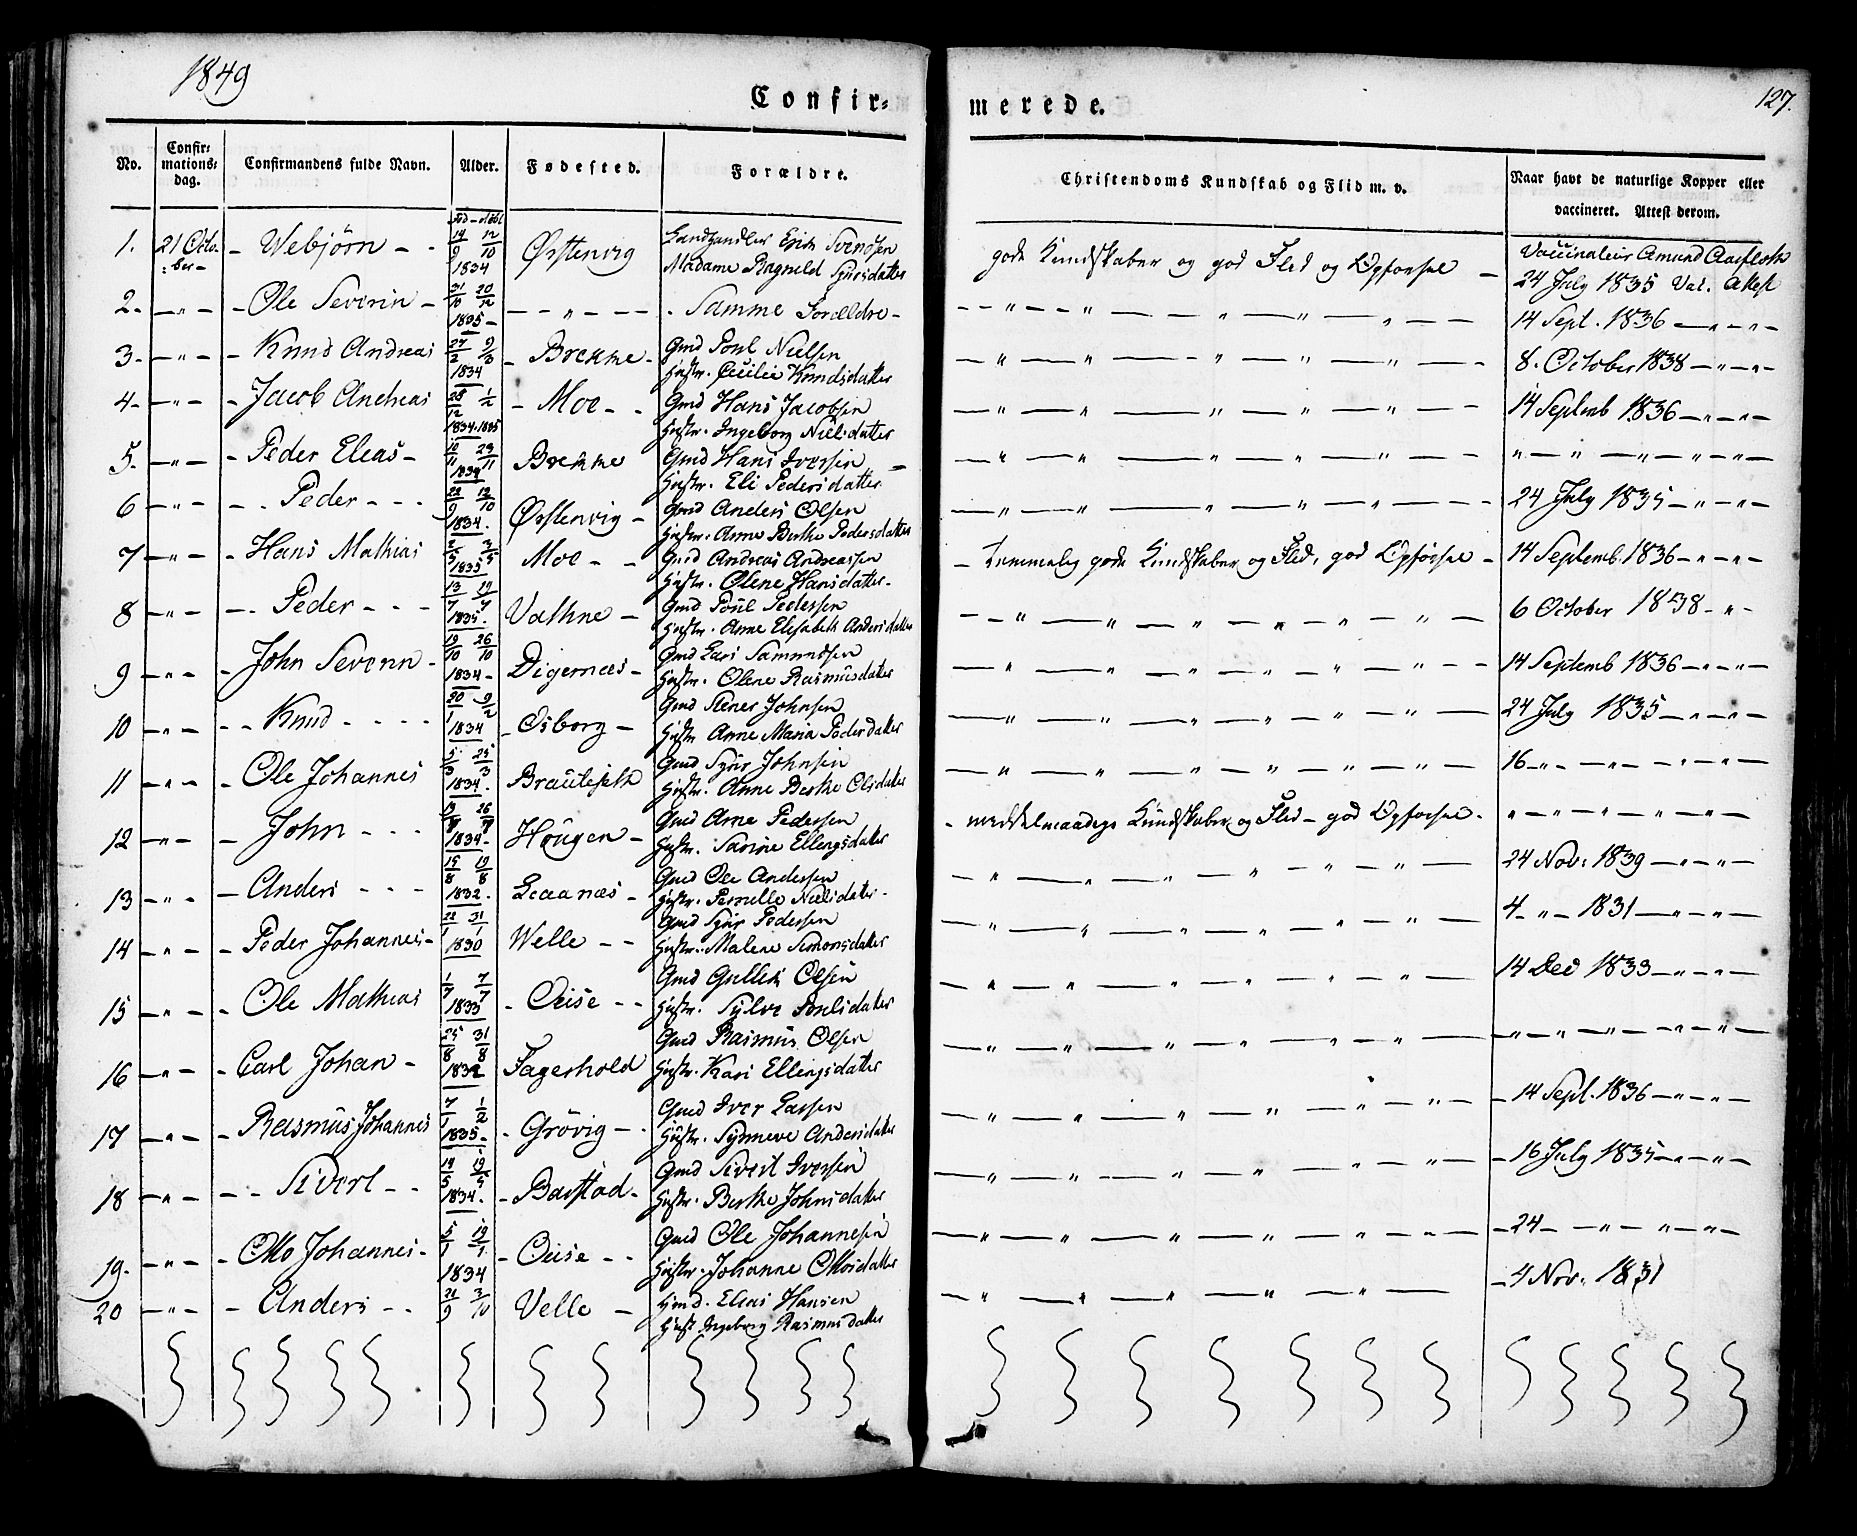 1849
127.
Confir=
merede.
No.
Confir=
mations=
dag.
Confirmandens fulde Navn.
Alder.
Fødested.
Forældre.
Christendoms Kundskab og Flid m. v.
Naar havt de naturlige Kopper eller
vaccineret. Attest derom.
1. 21 Octo- Webjørn 14/9 12/10 1834 Ørstenvig Landhandler Erik Svendsen gode Kundskaber og god Flid og Opførsel Vaccinateur Amund Aarfloth
ber Madame Ragneld Sjursdatter 24 July 1835 Vac. Attest
2. - " - Ole Severin 21/10 20/12 1835 - " - Samme Forældre 14 Sept. 1836 - " - " -
3. - " - Knud Andreas 27/2 9/3 1834 Brekke Gmd Poul Nielsen 8. October 1838 - " - " -
Hustr. Cecilie Knudsdatter
4. - " - Jacob Andreas 28/12 1/2 1834. 1835 Moe Gmd Hans Jacobsen 14 Septemb 1836 - " - " -
Hustr. Ingeborg Nielsdatter
5. - " - Peder Eleas 10/11 23/11 1834 Brekke Gmd Hans Iversen " - " - " - " -
Hustr. Eli Pedersdatter
6 - " - Peder 22/9 12/10 1834. Ørstenvig Gmd Anders Olsen 24 July 1835 - " - " -
Hustr. Anne Berthe Pedersdatter
7 - " - Hans Mathias 1835 Moe Gmd Andreas Andreassen Temmelig gode Kundskaber og Flid, god Opførsel 14 Septemb. 1836 - " - " -
Hustr. Olene Hansdatter
8 - " - Peder 13/7 19/7 1835. Vathne Gmd Poul Pedersen 6 October 1838 - " -
Hustr. Anne Elisabeth Andersdatter
9 - " - John Severin 19/10 26/10 1834 Digernæs Gmd Lars Samundsen 14 Septemb 1836 - " - " -
Hustr. Olene Rasmusdatter
10 - " - Knud 20/1 9/2 1834 Osborg Gmd Stener Johnsen 24 July 1835 - " - " -
Hustr Anne Maria Pedersdatter
11 - " - Ole Johannes 5/3 25/3 1834. Brautesæth Gmd Sjur Johnsen 16 - " - " - " -
Hustr. Anne Berthe Olsdatter
12 - " - John 1834 Hougen Gmd Arne Pedersen middelmaadige Kundskaber og Flid - god Opførsel. " - " - " - " -
Hustr. Sarine Ellingsdatter
13 - " - Anders 15/8 19/8 1832. Leaanæs Gmd Ole Andersen 24 Nov. 1839 - " - " -
Hustr. Pernelle Nielsdatter
14 - " - Peder Johannes 22/1 31/1 1830 Welle Gmd Sjur Pedersen 4 - " - 1831 - " - " -
Hustr. Malene Simonsdatter
15 - " - Ole Mathias 1/7 7/7 1833 Oeise Gmd Gullik Olsen 14 Dec 1833 - " - " -
Hustr. Sylve Poulsdatter
16 - " - Carl Johan 25/8 31/8 1834 Fagerhold Gmd Rasmus Olsen " - " - " - " -
Hustr. Kari Ellingsdatter
17 - " - Rasmus Johannes 7/1 1/2 1835 Grøvig Gmd Iver Larsen 14 Sept. 1836 - " - " -
Hustr. Synneve Andersdatter
18 - " - Sivert 14/5 19/5 1834. Barstad Gmd Sivert Iversen 16 July 1835 - " - " -
Hustr. Berthe Johnsdatter
19. - " - Otto Johannes 5/1 19/1 1834 Oeise Gmd Ole Johannesen 24 - " - " - " -
Hustr. Johanne Ottosdatter
20 - " - Anders 21/9 3/10 Velle Hmd. Elias Hansen 4 Nov. 1831
Hust Ingeborg Rasmusdatter